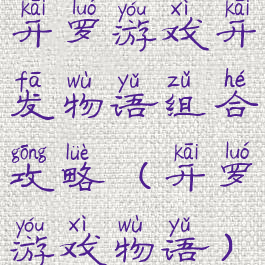 kāi luó yóu xì kāi
开罗游戏开
fā wù yǔ zǔ hé
发物语组合
gōng lüè kāi luó
攻略（开罗
yóu xì wù yǔ
游戏物语）